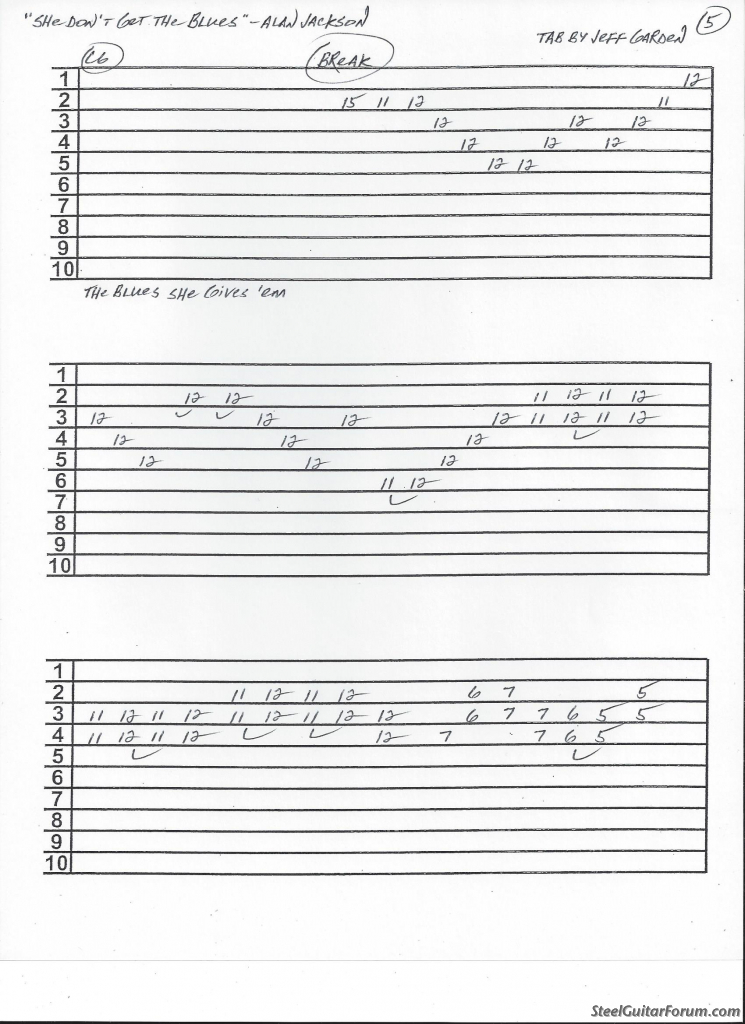 "She Don't Get The Blues" - Alan Jackson 5
Tab by Jeff Garden
C6 Break
1 12
2 15 11 12 11
3 12 12 12
4 12 12 12
5 12 12
6
7
8
9
10
The Blues she gives 'em
1
2 12 12 11 12 11 12
3 12 12 12 12 11 12 11 12
4 12 12 12
5 12 12 12
6 11 12
7
8
9
10
1
2 11 12 11 12 6 7 5
3 11 12 11 12 11 12 11 12 12 6 7 7 6 5 5
4 11 12 11 12 12 7 7 6 5
5
6
7
8
9
10
SteelGuitarForum.com